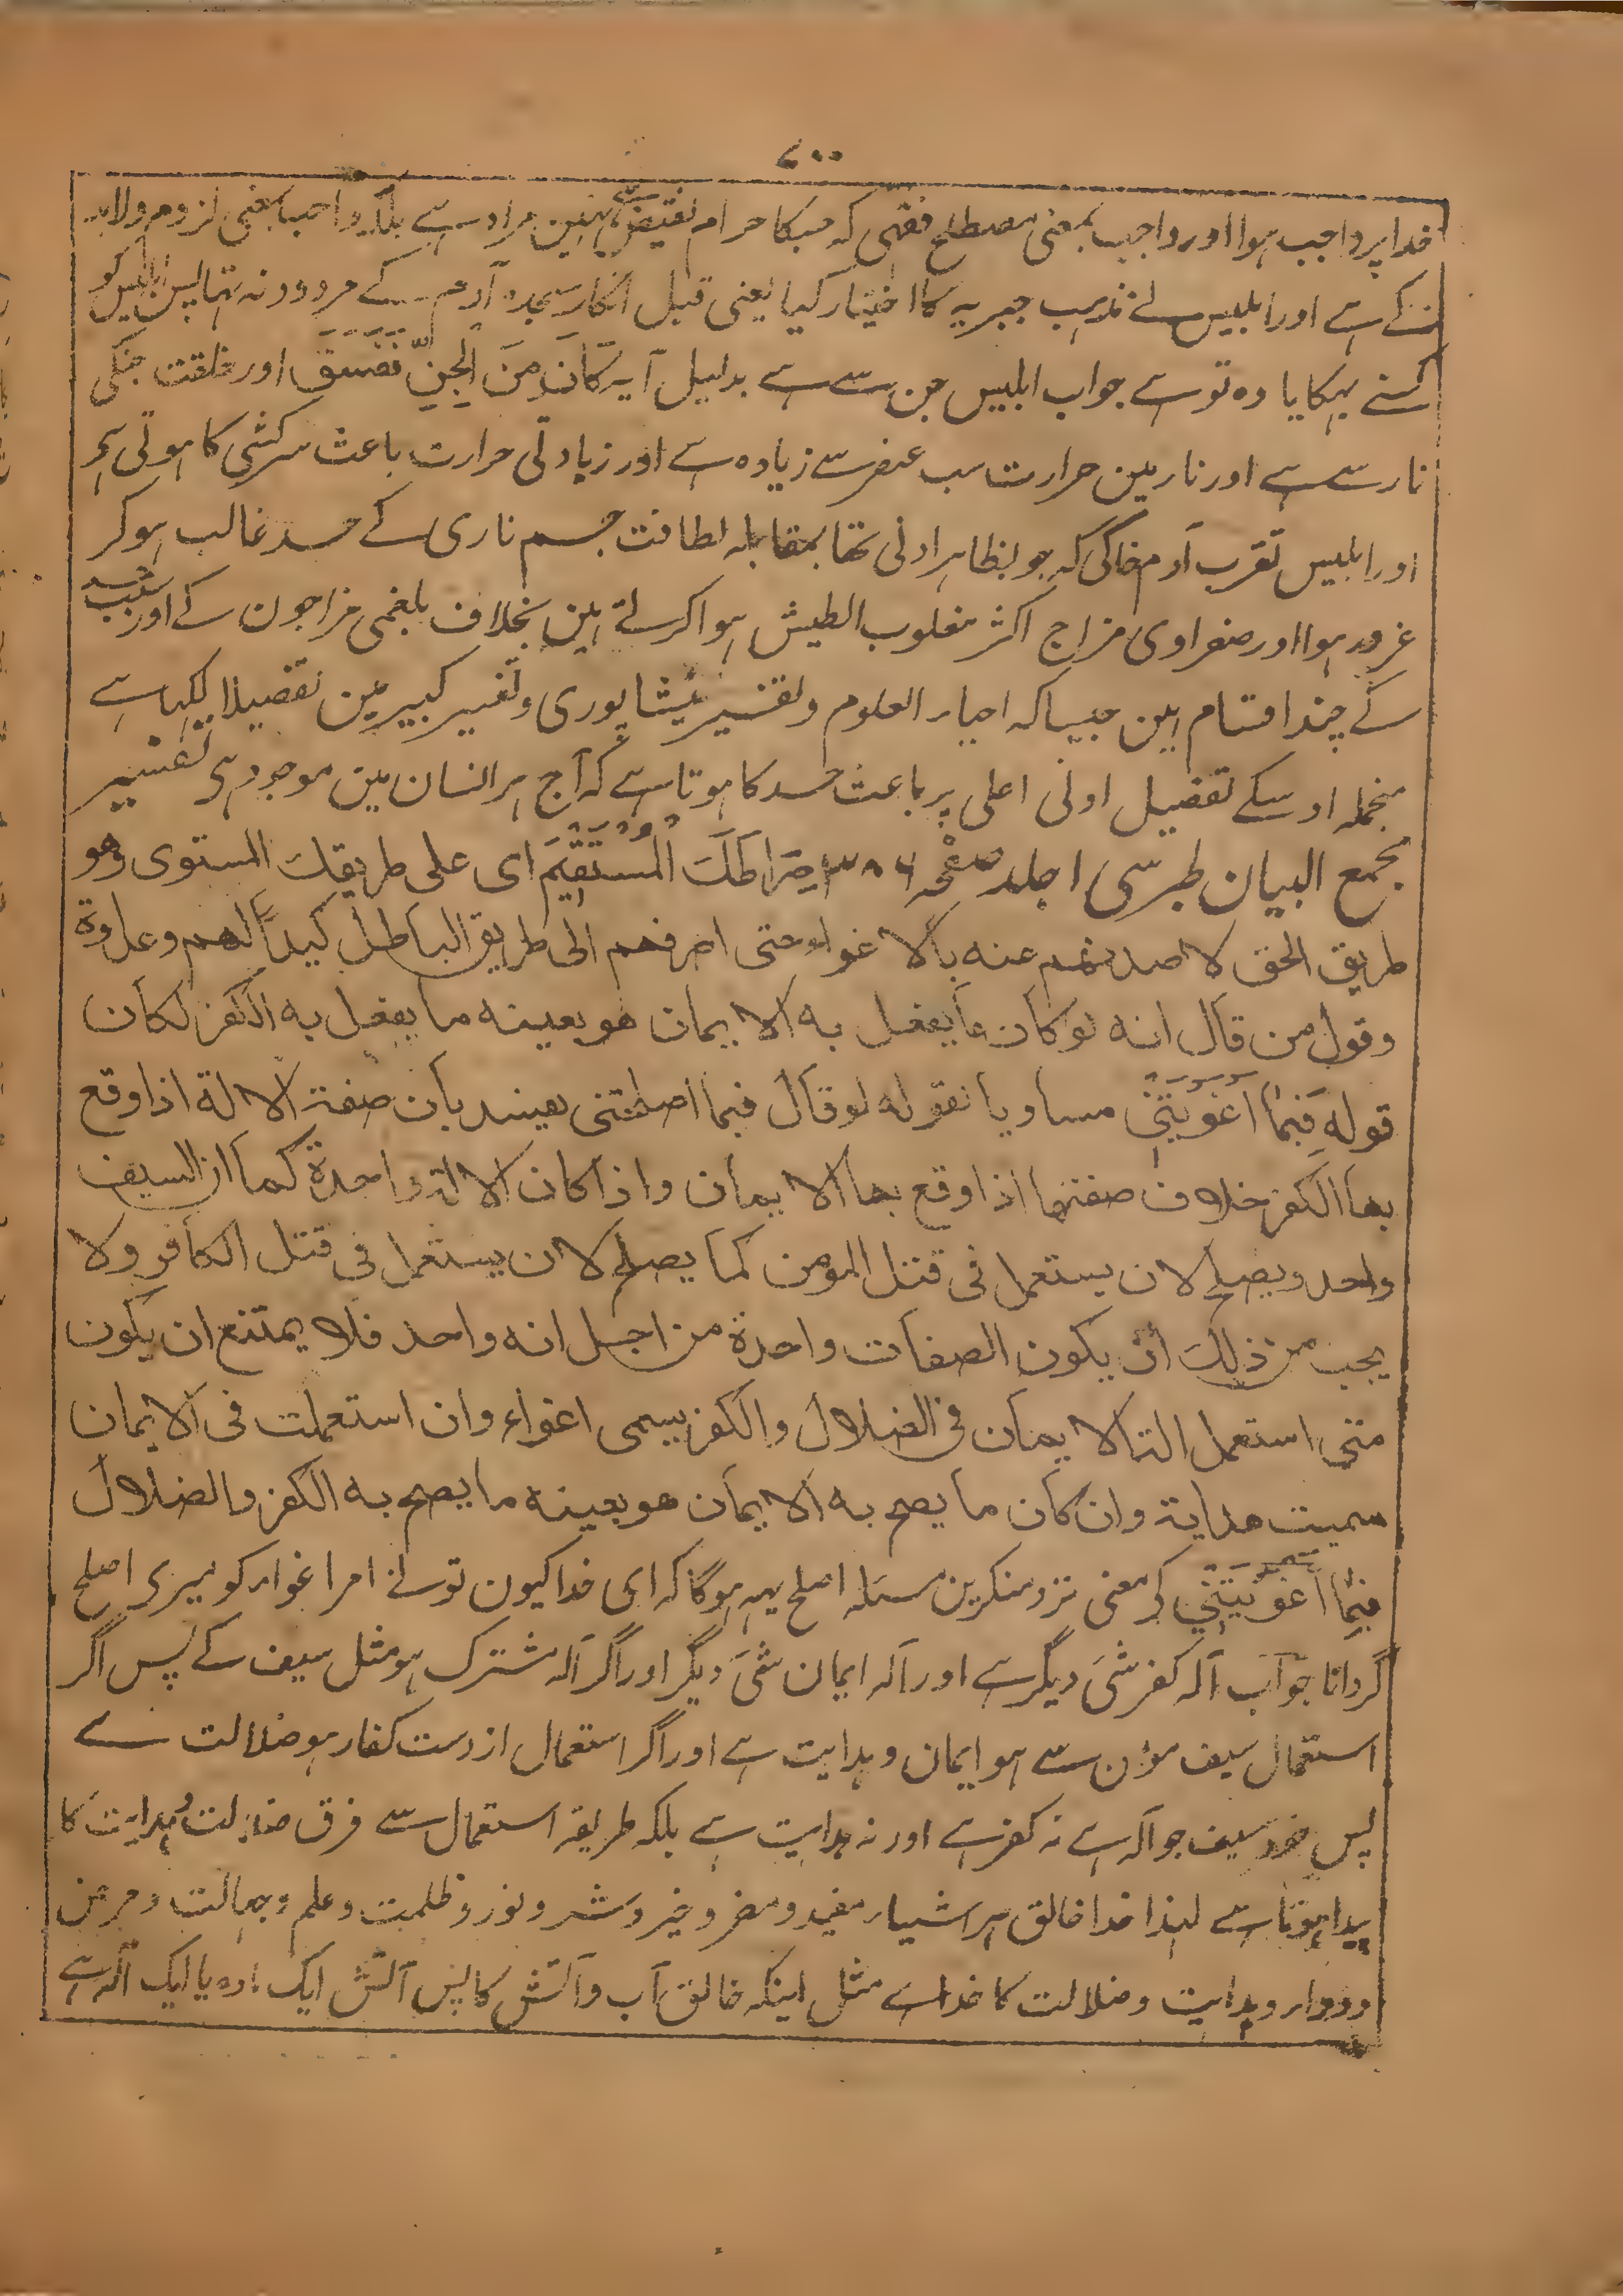 ۷۰۰
خدا پر واجب ہوا اور واجب بمعنی مصطلح فقہی کہ جسکا حرام نقیض ہے نہین مراد ہے بلکہ واجب بمعنی لزوم ولابد
کے ہے اور ابلیس نے مذہب جبریہ کا اختیار کیا یعنی قبل انکار سجدہ آدم کے مردود نہ تہا پس ابلیس کو
کسنے بہکایا وہ تو ہے جواب ابلیس جن سے ہے بدلیل آیہ کَانَ مِنَ الْجِنِّ فَفَسَقَ اور خلقت جنکی
نار سے ہے اور نار مین حرارت سب عنصر سے زیادہ ہے اور زیادتی حرارت باعث سرکشی کا ہوتی ہے
اور ابلیس تقرب آدم خاکی کہ جو بظاہر ادنی تھا بمقابلہ لطافت جسم ناری کے حسد غالب ہو کر
غرور ہوا اور صفراوی مزاج اکثر مغلوب الطیش ہوا کرتے ہین بخلاف بلغمی مزاجون کے اور سبب حسد
کے چند اقسام ہین جیسا کہ احیاء العلوم وتفسیر نیشاپوری وتفسیر کبیر مین تفصیلا لکہا ہے
منجملہ اوسکے تفضیل ادنی اعلی پر باعث حسد کا ہوتا ہے کہ آج ہر انسان مین موجود ہی تفسیر
مجمع البیان طبرسی ا جلد صفحہ ۳۰۶ صِرَاطَكَ الْمُسْتَقِيْمَ ای علی طریقك المستوی وهو
طریق الحق لاصدنهم عنه بالاغواء حتی اصرفهم الی طریق الباطل کیداً لهم وعداوة
وقول من قال انه لو کان ما یفعل به الایمان هو بعینه ما یفعل به الکفر لکان
قوله فَبِمَا اَغْوَيْتَنِيْ مساویا نقوله لو قال فبما اصلحتنی یفسد بان صفة الالة اذا وقع
بها الکفر خلاف صفتها اذا وقع بها الایمان واذا کان الالة واحدة کما ان السیف
واحد ویصلح لان یستعمل فی قتل المومن کما یصلح لان یستعمل فی قتل الکافر ولا
یجب من ذلك ان یکون الصفات واحدة من اجل انه واحد فلا یمتنع ان یکون
متی استعمل الة الایمان فی الضلال والکفر یسمی اغواء وان استعملت فی الایمان
سمیت هدایة وان کان ما یصح به الایمان هو بعینه ما یصح به الکفر والضلال
فَبِمَا اَغْوَيْتَنِيْ کے معنی نزد منکرین مسئلہ اصلح یہہ ہوگا کہ ای خدا کیون تو نے امر اغواء کو میری اصلح
گردانا جواب آلہ کفر شیٔ دیگر ہے اور آلہ ایمان شیٔ دیگر اور اگر آلہ مشترک ہو مثل سیف کے پس اگر
استعمال سیف مؤمن سے ہو ایمان وہدایت ہے اور اگر استعمال از دست کفار ہو ضلالت ہے
پس خود سیف جو آلہ ہے نہ کفر ہے اور نہ ہدایت ہے بلکہ طریقہ استعمال سے فرق ضلالت وہدایت کا
پیدا ہوتا ہے لہذا خدا خالق ہر اشیاء مفید ومضر وخیر وشر ونور وظلمت وعلم وجہالت ومرض
ودواء وہدایت وضلالت کا خدا ہے مثل اینکہ خالق آب وآتش کا پس آتش ایک مادہ یا ایک آلہ ہے